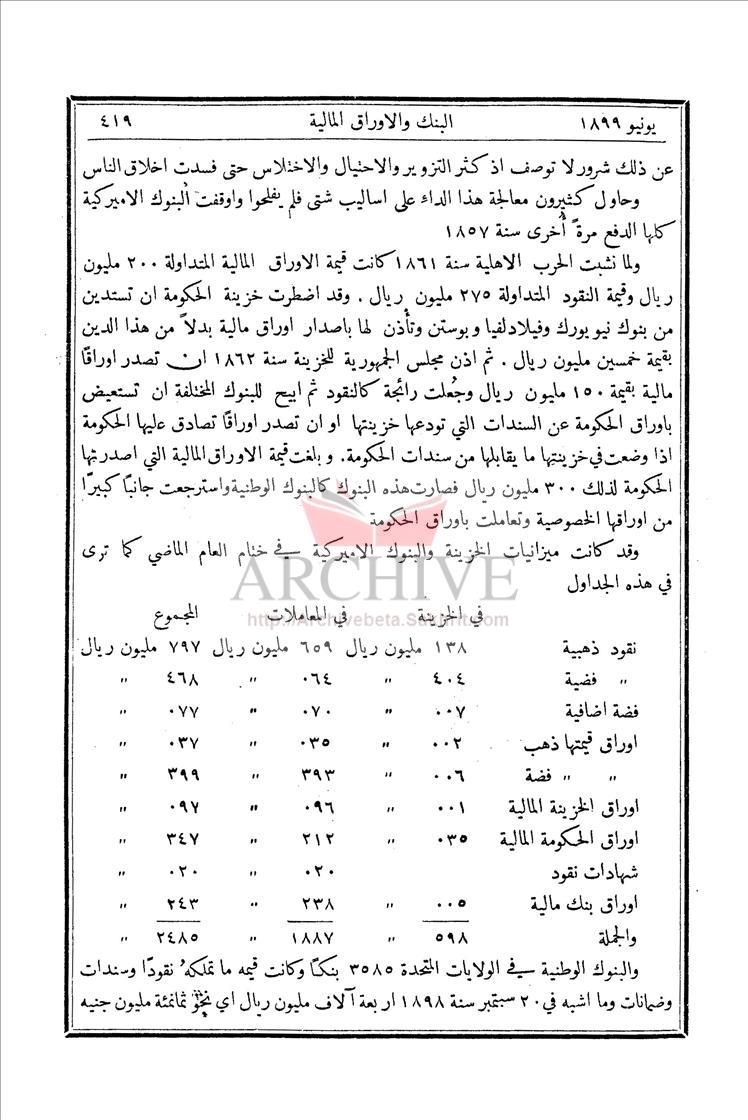 يونيو ١٨٩٩ البنك والاوراق المالية ٤١٩
عن ذلك شرور لا توصف اذ كثر التزوير والاحتيال والاختلاس حتى فسدت اخلاق الناس
وحاول كثيرون معالجة هذا الداء على اساليب شتى فلم يفلحوا واوقفت البنوك الاميركية
كلها الدفع مرةً أُخرى سنة ١٨٥٧
ولما نشبت الحرب الاهلية سنة ١٨٦١ كانت قيمة الاوراق المالية المتداولة ٢٠٠ مليون
ريال وقيمة النقود المتداولة ٢٧٥ مليون ريال . وقد اضطرت خزينة الحكومة ان تستدين
من بنوك نيويورك وفيلادلفيا وبوستن وتأذن لها باصدار اوراق مالية بدلاً من هذا الدين
بقيمة خمسين مليون ريال . ثم اذن مجلس الجمهورية للخزينة سنة ١٨٦٢ ان تصدر اوراقًا
مالية بقيمة ١٥٠ مليون ريال وجُعلت رائجة كالنقود ثم ابيح للبنوك المختلفة ان تستعيض
باوراق الحكومة عن السندات التي تودعها خزينتها او ان تصدر اوراقًا تصادق عليها الحكومة
اذا وضعت في خزينتها ما يقابلها من سندات الحكومة. وبلغت قيمة الاوراق المالية التي اصدرتها
الحكومة لذلك ٣٠٠ مليون ريال فصارت هذه البنوك كالبنوك الوطنية واسترجعت جانبًا كبيرًا
من اوراقها الخصوصية وتعاملت باوراق الحكومة
وقد كانت ميزانيات الخزينة والبنوك الاميركية في ختام العام الماضي كما ترى
في هذه الجداول
ARCHIVE
http://Archivebeta.Sakhrit.com
في الخزينة في المعاملات المجموع
نقود ذهبية ١٣٨ مليون ريال ٦٥٩ مليون ريال ٧٩٧ مليون ريال
" فضية ٤٠٤ " ٠٦٤ " ٤٦٨ "
فضة اضافية ٠٠٧ " ٠٧٠ " ٠٧٧ "
اوراق قيمتها ذهب ٠٠٢ " ٠٣٥ " ٠٣٧ "
" " فضة ٠٠٦ " ٣٩٣ " ٣٩٩ "
اوراق الخزينة المالية ٠٠١ " ٠٩٦ " ٠٩٧ "
اوراق الحكومة المالية ٠٣٥ " ٢١٢ " ٣٤٧ "
شهادات نقود ٠٢٠ " ٠٢٠ "
اوراق بنك مالية ٠٠٥ " ٢٣٨ " ٢٤٣ "
والجملة ٥٩٨ " ١٨٨٧ " ٢٤٨٥ "
والبنوك الوطنية في الولايات المتحدة ٣٥٨٥ بنكًا وكانت قيمه ما تملكهُ نقودًا وسندات
وضمانات وما اشبه في ٢٠ سبتمبر سنة ١٨٩٨ اربعة آلاف مليون ريال اي نحو ثمانمئة مليون جنيه